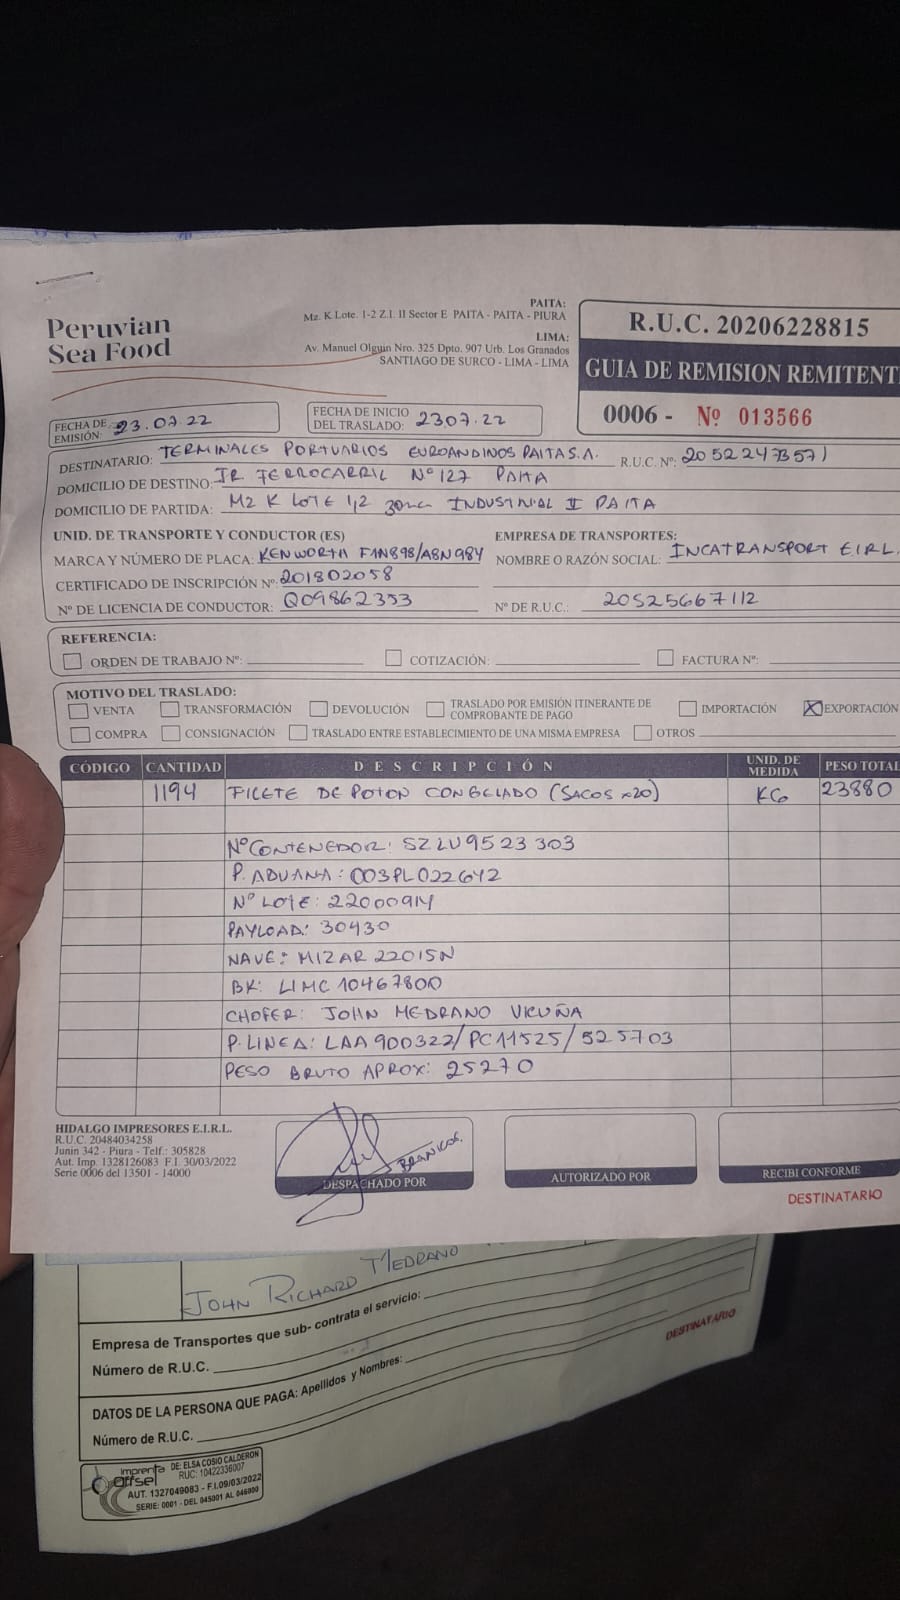 Peruvian
Sea Food
PAITA:
Mz. K Lote. 1-2 Z.I. II Sector E PAITA - PAITA - PIURA
LIMA:
Av. Manuel Olguin Nro. 325 Dpto. 907 Urb. Los Granados
SANTIAGO DE SURCO - LIMA - LIMA
R.U.C. 20206228815
GUIA DE REMISION REMITENT
0006 - Nº 013566
FECHA DE EMISIÓN: 23.07.22
FECHA DE INICIO DEL TRASLADO: 2307.22
DESTINATARIO: TERMINALES PORTUARIOS EUROANDINOS PAITA S.A. R.U.C. Nº: 20522473571
DOMICILIO DE DESTINO: JR FERROCARRIL Nº 127 PAITA
DOMICILIO DE PARTIDA: MZ K LOTE 1,2 zona INDUSTRIAL II PAITA
UNID. DE TRANSPORTE Y CONDUCTOR (ES) EMPRESA DE TRANSPORTES:
MARCA Y NÚMERO DE PLACA: KENWORTH F1N898/A8N984 NOMBRE O RAZÓN SOCIAL: INCATRANSPORT E.I.R.L.
CERTIFICADO DE INSCRIPCIÓN Nº: 201802058
Nº DE LICENCIA DE CONDUCTOR: Q09862353 Nº DE R.U.C.: 20525667112
REFERENCIA:
ORDEN DE TRABAJO Nº: COTIZACIÓN: FACTURA Nº:
MOTIVO DEL TRASLADO:
VENTA TRANSFORMACIÓN DEVOLUCIÓN TRASLADO POR EMISIÓN ITINERANTE DE COMPROBANTE DE PAGO IMPORTACIÓN X EXPORTACIÓN
COMPRA CONSIGNACIÓN TRASLADO ENTRE ESTABLECIMIENTO DE UNA MISMA EMPRESA OTROS
CÓDIGO CANTIDAD DESCRIPCIÓN UNID. DE MEDIDA PESO TOTAL
1194 FILETE DE POTON CONGELADO (SACOS x20) KG 23880
Nº CONTENEDOR: SZLU9523303
P. ADUANA: 003PL022642
Nº LOTE: 22000914
PAYLOAD: 30430
NAVE: MIZAR 22015N
BK: LIMC10467800
CHOFER: JOHN MEDRANO VICUÑA
P. LINEA: LAA900322/PC11525/525703
PESO BRUTO APROX: 25270
HIDALGO IMPRESORES E.I.R.L.
R.U.C. 20484034258
Junin 342 - Piura - Telf.: 305828
Aut. Imp. 1328126083 F.I. 30/03/2022
Serie 0006 del 13501 - 14000
DESPACHADO POR
AUTORIZADO POR
RECIBI CONFORME
DESTINATARIO
JOHN RICHARD MEDRANO
Empresa de Transportes que sub- contrata el servicio:
Número de R.U.C.
DESTINATARIO
DATOS DE LA PERSONA QUE PAGA: Apellidos y Nombres:
Número de R.U.C.
Imprenta Offset
DE: ELSA COSIO CALDERON
RUC: 10422336007
AUT. 1327049083 - F.I.09/03/2022
SERIE: 0001 - DEL 045001 AL 046000